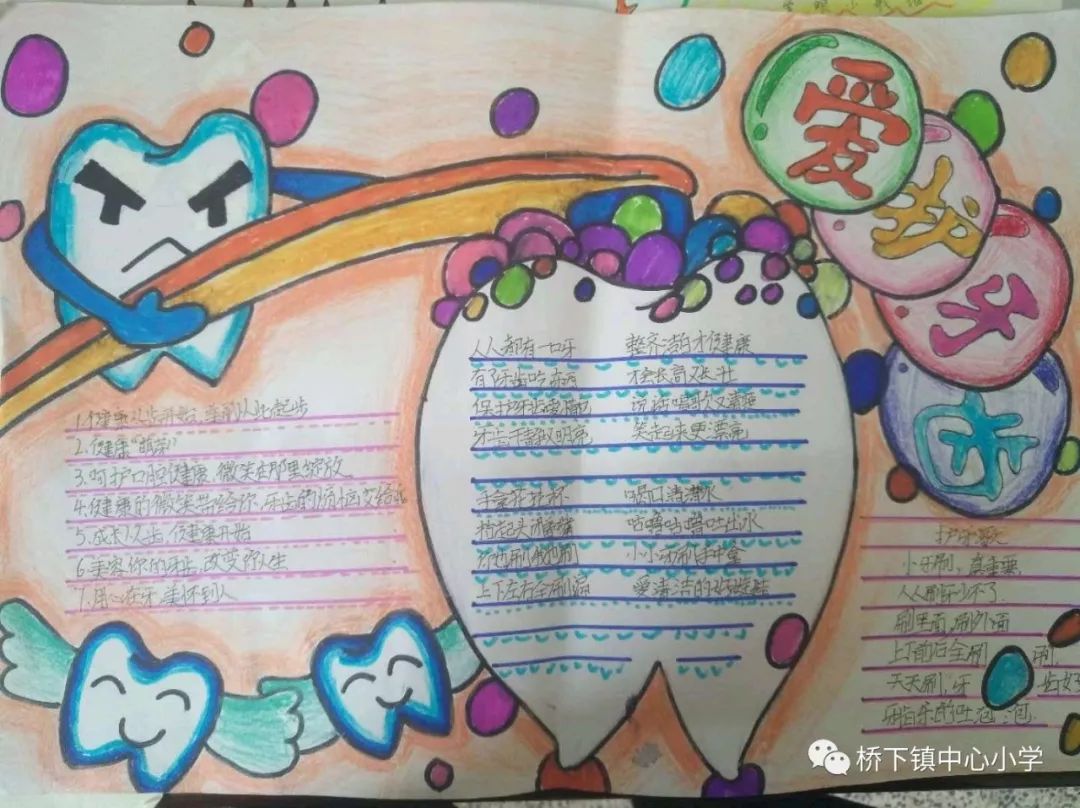 爱
我
牙
齿
1.健康从齿开始,美丽从此起步
2.健康"萌芽"
3.呵护口腔健康,微笑在那里绽放
4.健康的微笑带给你,牙齿的烦恼交给我
5.成长从齿,健康开始
6.美容你的牙齿,改变你人生
7.用心在牙,美怀到人
人人都有一口牙 整齐洁白才健康
有了牙齿吃东西 才会长高又长壮
保护牙齿要 说话唱歌又清楚
笑起来更漂亮
手拿牙杯 喝口清潔水
抬起头 咕噜咕噜吐出水
你也刷我也刷 小小牙刷手中拿
上下左右全刷遍 爱清洁的好娃娃
护牙歌
小牙刷,真重要
人人刷牙少不了
刷里面,刷外面
上下前后全刷 刷,
天天刷,牙 齿好
泡 泡
桥下镇中心小学